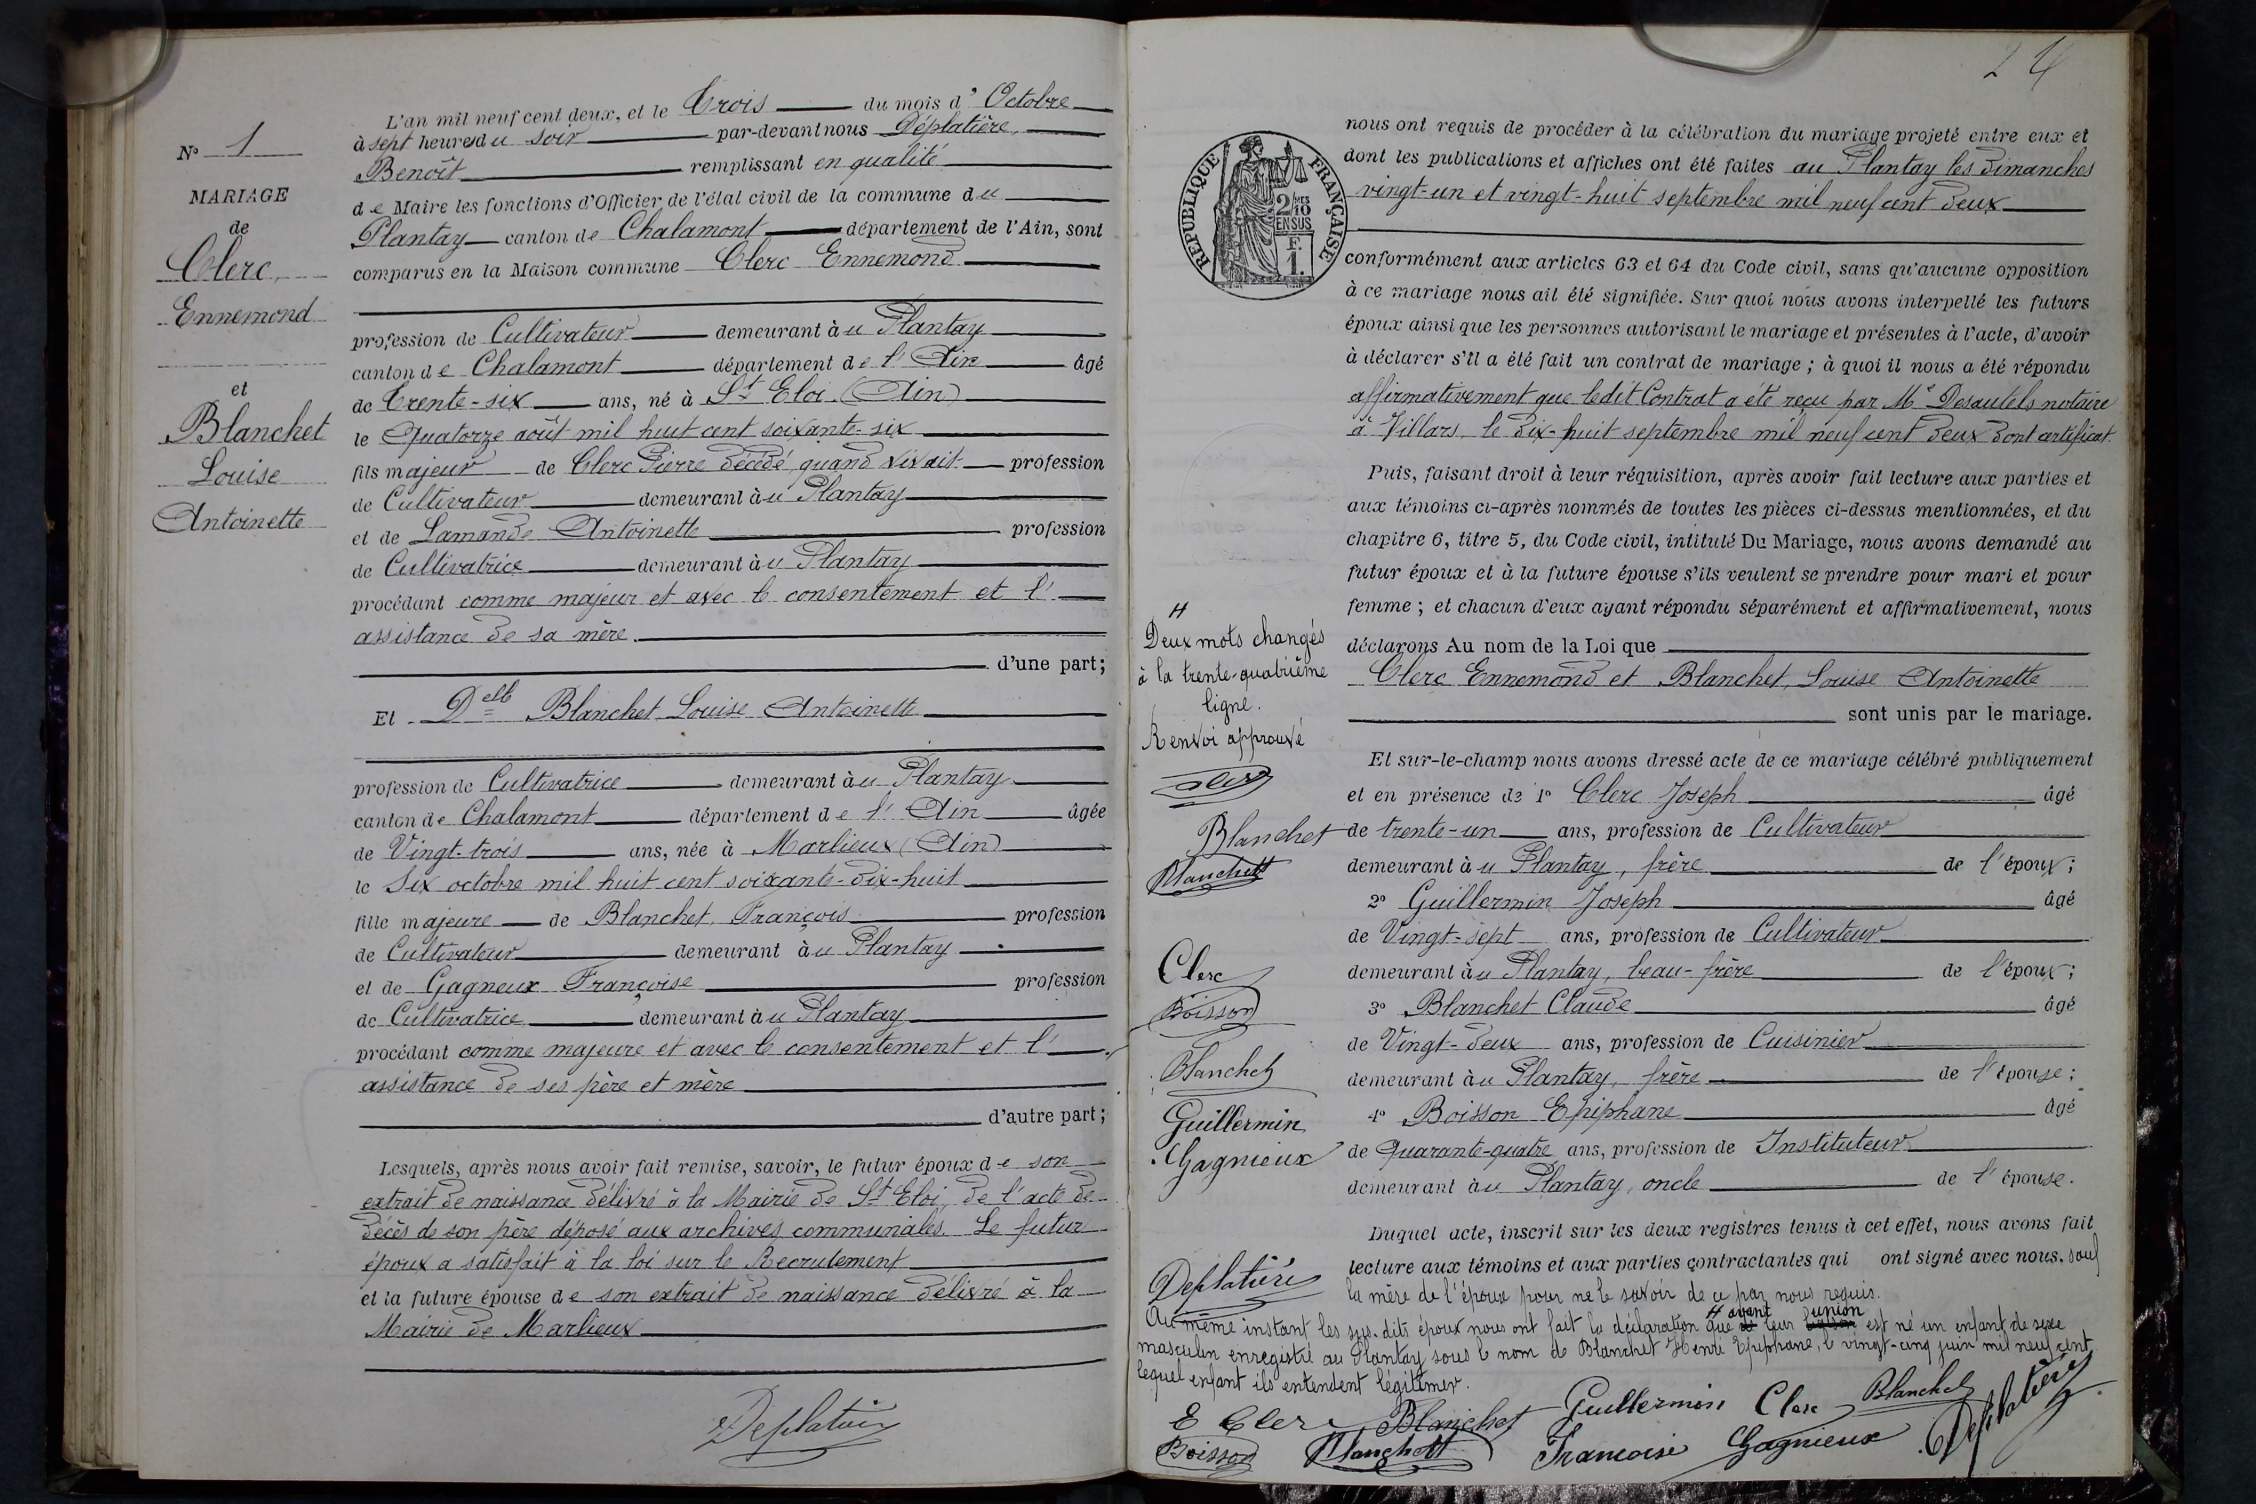 N° 1
MARIAGE
de
Clerc
Ennemond
et
Blanchet
Louise
Antoinette
L'an mil neuf cent deux, et le Trois du mois d' Octobre
à sept heures du soir par-devant nous Déplatière,
Benoît remplissant en qualité
de Maire les fonctions d'Officier de l'état civil de la commune du
Plantay canton de Chalamont département de l'Ain, sont
comparus en la Maison commune Clerc Ennemond
profession de Cultivateur demeurant à u Plantay
canton de Chalamont département de l' Ain âgé
de Trente-six ans, né à St Eloi (Ain)
le Quatorze août mil huit cent soixante-six
fils majeur de Clerc Pierre décédé quand vivait profession
de Cultivateur demeurant à u Plantay
et de Lamande Antoinette profession
de Cultivatrice demeurant à u Plantay
procédant comme majeur et avec le consentement et l'
assistance de sa mère.
d'une part;
Et Delle Blanchet Louise Antoinette
profession de Cultivatrice demeurant à u Plantay
canton de Chalamont département de l' Ain âgée
de Vingt-trois ans, née à Marlieux (Ain)
le Six octobre mil huit cent soixante-dix-huit
fille majeure de Blanchet, François profession
de Cultivateur demeurant à u Plantay
et de Gagneux Françoise profession
de Cultivatrice demeurant à u Plantay
procédant comme majeure et avec le consentement et l'
assistance de ses père et mère
d'autre part;
Lesquels, après nous avoir fait remise, savoir, le futur époux de son
extrait de naissance délivré à la Mairie de St Eloi, de l'acte de
décès de son père déposé aux archives communales. Le futur
époux a satisfait à la loi sur le Recrutement
et la future épouse de son extrait de naissance délivré à la
Mairie de Marlieux
Deplatière
24
RÉPUBLIQUE FRANÇAISE
2/10 MES
EN SUS
F.
1.
nous ont requis de procéder à la célébration du mariage projeté entre eux et
dont les publications et affiches ont été faites au Plantay les dimanches
vingt-un et vingt-huit septembre mil neuf cent deux
conformément aux articles 63 et 64 du Code civil, sans qu'aucune opposition
à ce mariage nous ait été signifiée. Sur quoi nous avons interpellé les futurs
époux ainsi que les personnes autorisant le mariage et présentes à l'acte, d'avoir
à déclarer s'il a été fait un contrat de mariage ; à quoi il nous a été répondu
affirmativement que ledit Contrat a été reçu par Me Desautels notaire
à Villars, le dix-huit septembre mil neuf cent deux dont certificat.
Puis, faisant droit à leur réquisition, après avoir fait lecture aux parties et
aux témoins ci-après nommés de toutes les pièces ci-dessus mentionnées, et du
chapitre 6, titre 5, du Code civil, intitulé Du Mariage, nous avons demandé au
futur époux et à la future épouse s'ils veulent se prendre pour mari et pour
femme ; et chacun d'eux ayant répondu séparément et affirmativement, nous
déclarons Au nom de la Loi que
Clerc Ennemond et Blanchet, Louise Antoinette
sont unis par le mariage.
Et sur-le-champ nous avons dressé acte de ce mariage célébré publiquement
et en présence de 1° Clerc Joseph âgé
de trente-un ans, profession de Cultivateur
demeurant à u Plantay, frère de l'époux;
2° Guillermin Joseph âgé
de Vingt-sept ans, profession de Cultivateur
demeurant à u Plantay, beau-frère de l'époux;
3° Blanchet Claude âgé
de Vingt-deux ans, profession de Cuisinier
demeurant à u Plantay, frère de l'épouse;
4° Boisson Epiphane âgé
de Quarante-quatre ans, profession de Instituteur
demeurant à u Plantay, oncle de l'épouse.
Duquel acte, inscrit sur les deux registres tenus à cet effet, nous avons fait
lecture aux témoins et aux parties contractantes qui ont signé avec nous, sauf
la mère de l'époux pour ne le savoir de ce par nous requis.
Au même instant les sus-dits époux nous ont fait la déclaration que H avant leur union est né un enfant de sexe
masculin enregistré au Plantay sous le nom de Blanchet Henri Epiphane, le vingt-cinq juin mil neuf cent
lequel enfant ils entendent légitimer.
E Clerc Blanchet Guillermin Clerc Blanchet Deplatière
Boisson Blanchett Francoise Gagnieux
H
Deux mots changés
à la trente-quatrième
ligne.
Renvoi approuvé
Clerc
Blanchet
Blanchett
Clerc
Boisson
Blanchet
Guillermin
Gagnieux
Deplatière